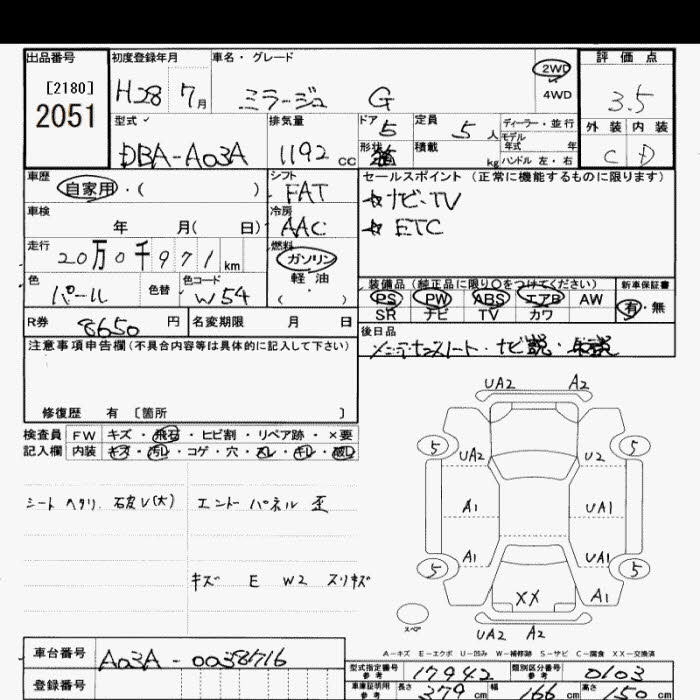 出品番号 初度登録年月 車名・グレード 評価点
[2180] H28 7月 ミラージュ G 2WD 4WD 3.5
2051
型式 排気量 ドア 5 定員 5人 ディーラー・並行 外装 内装
DBA-A03A 1192 cc 形状 積載 kg モデル年式 年 C D
ハンドル 左・右
車歴 シフト セールスポイント (正常に機能するものに限ります)
自家用・( ) FAT ☆ナビ・TV
車検 冷房 ☆ETC
年 月( 日) AAC
走行 20万0千971km 燃料
ガソリン
軽油
( )
色 パール 色替 色コード W54
装備品 (純正品に限り○をつけてください) 新車保証書
PS PW ABS エアB AW 有・無
SR ナビ TV カワ
R券 8650 円 名変期限 月 日
後日品
注意事項申告欄(不具合内容等は具体的に記入して下さい)
修復歴 有 [箇所 ]
検査員 FW キズ・飛石・ヒビ割・リペア跡・×要
記入欄 内装 キズ・汚レ・コゲ・穴・スレ・キレ・破レ
UA2 A2
5 5
UA2 U2
シート ヘタリ エンドーパネル 歪
A1 UA1
A1 UA1
5 5
キズ E W2 スリキズ
XX A1
スペア
UA2 A2
A-キズ E-エクボ U-凹み W-補修跡 S-サビ C-腐食 XX-交換済
車台番号 A03A-0038716
登録番号
型式指定番号 17942 類別区分番号 0103
車庫証明用参考 長さ 379cm 幅 166cm 高さ 150cm